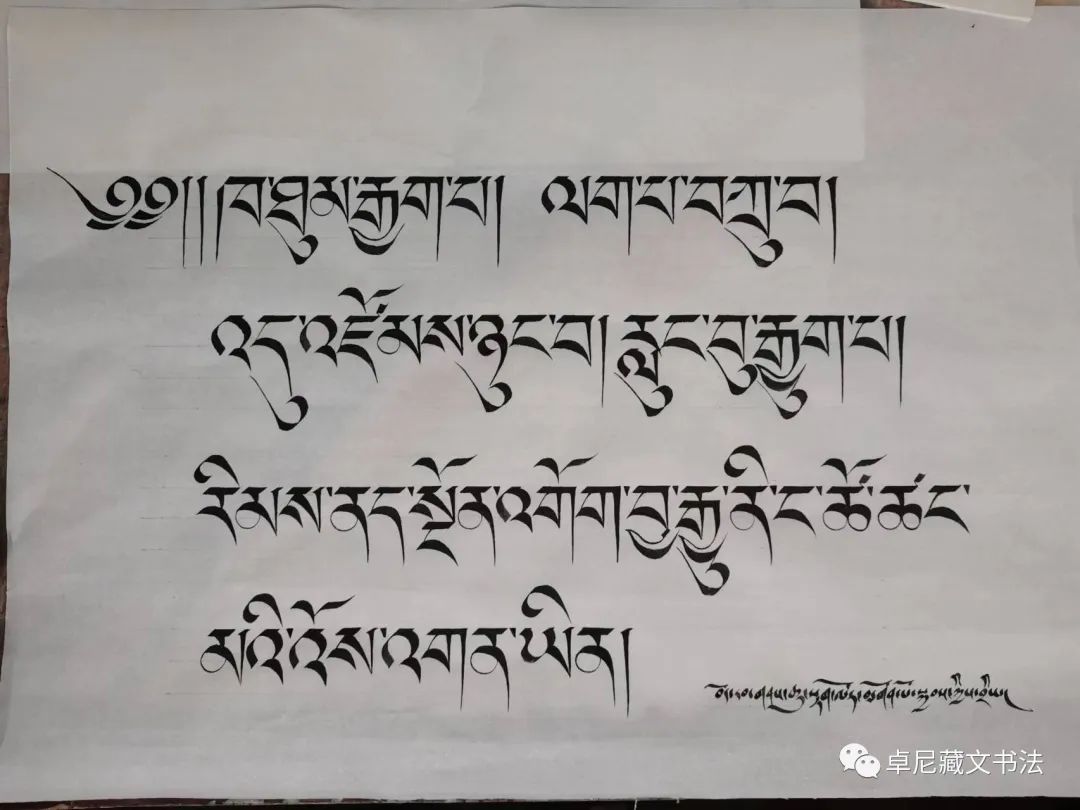 ༄༅།།ཁ་ཐུམ་རྒྱག་པ། ལག་པ་བཀྲུ་བ།
འདུ་འཛོམས་ཉུང་བ། རླུང་བུ་རྒྱུག་པ།
རིམས་ནད་སྔོན་འགོག་བྱ་རྒྱུ་ནི་ང་ཚོ་ཚང་
མའི་འོས་འགན་ཡིན།
卓尼藏文书法